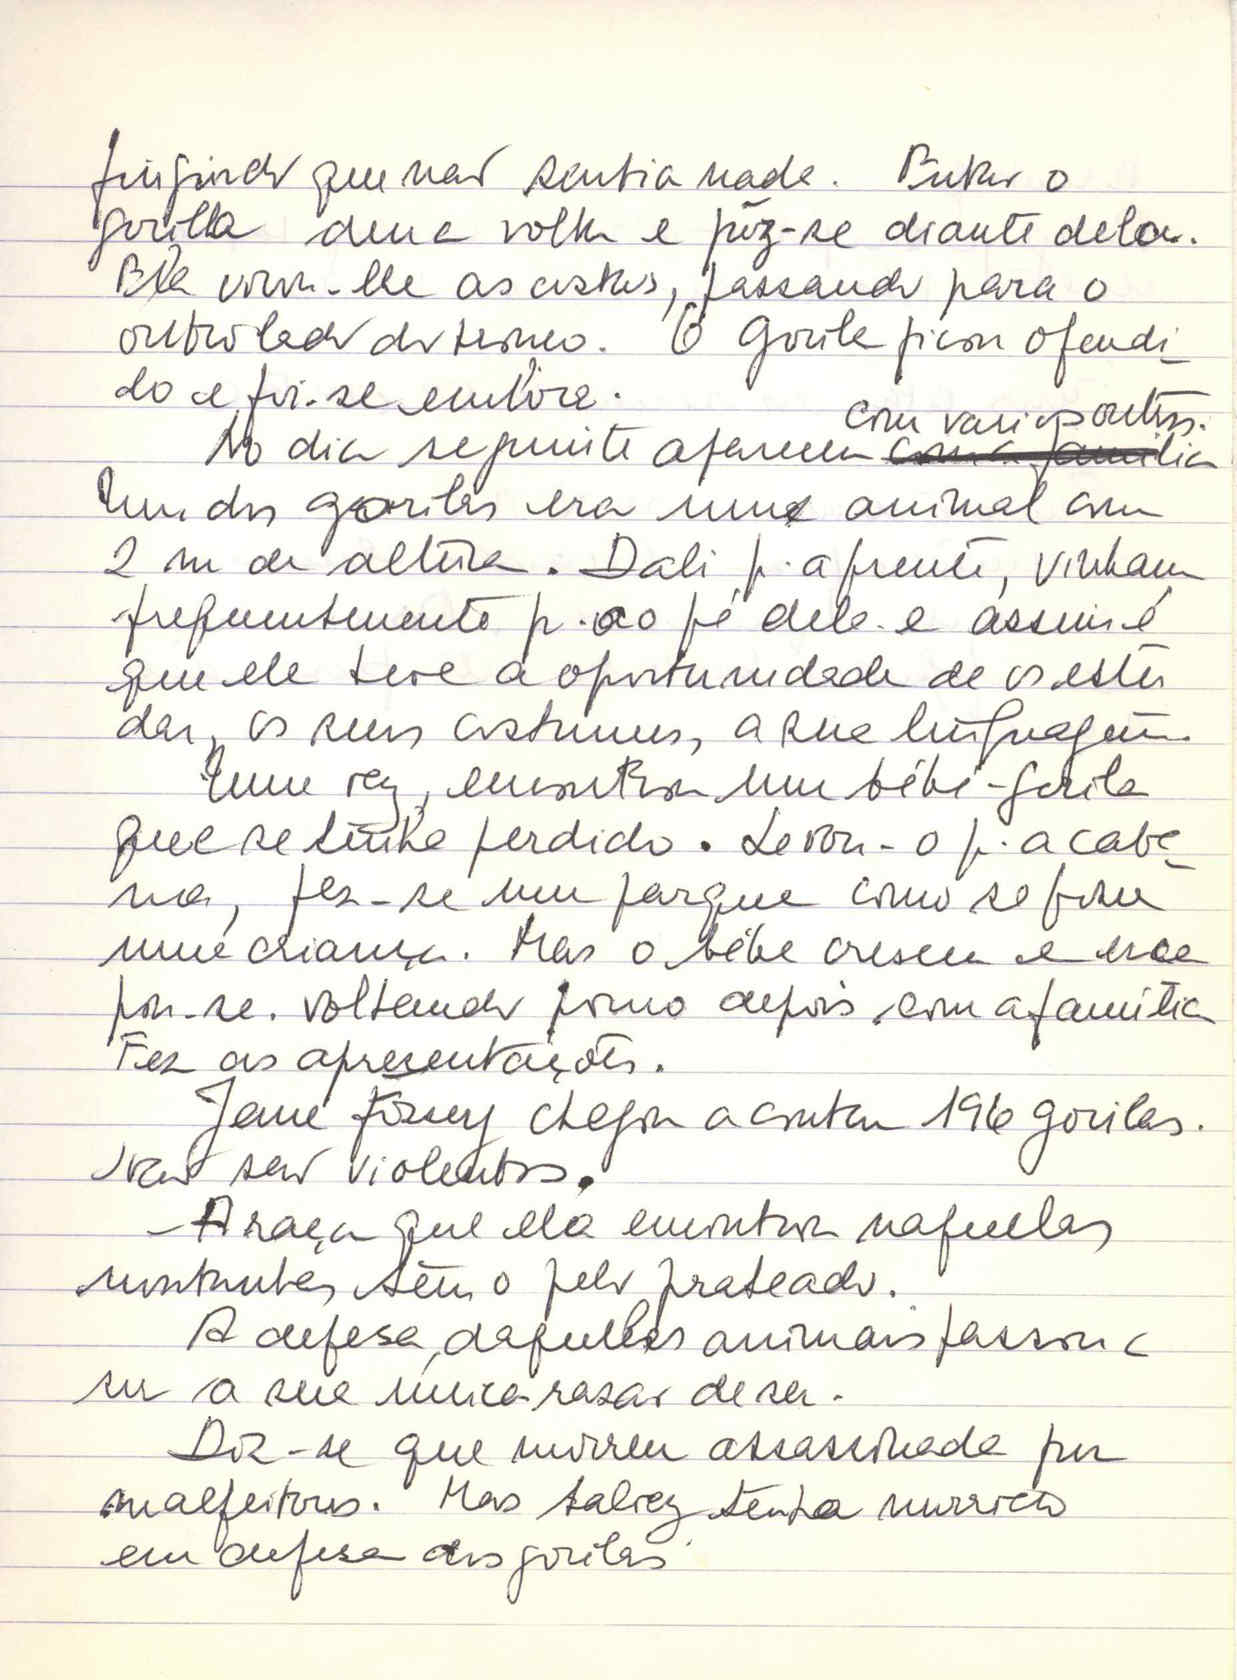 fingindo que não sentia nada. Então o
gorilla deu a volta e pôz-se diante dela.
Ela virou-lhe as costas, passando para o
outro lado do tronco. O Gorila ficou ofendi-
do e foi-se embora.
No dia seguinte apareceu com varios outros.
com a familia
Um dos gorilas era um animal com
2 m de altura. Dali p. a frente, vinham
frequentemente p. ao pé dela e assim é
que ele teve a oportunidade de os estu
dar, os seus costumes, a sua linguagem.
Uma vez, encontrou um bébé-gorila
que se tinha perdido. Levou-o p. a caba-
na, fez-se um parque como se fosse
uma criança. Mas o bébe cresceu e esca
pou-se. voltando pouco depois com a familia
Fez as apresentações.
Jane Fossey chegou a contar 196 gorilas.
Não são violentos.
- A raça que ela encontrou naquelas
montanhas têm o pelo prateado.
A defesa daquelles animais passou a
ser a sua única razão de ser.
Diz-se que morreu assassinada por
malfeitores. Mas talvez tenha morrido
em defesa dos gorilas